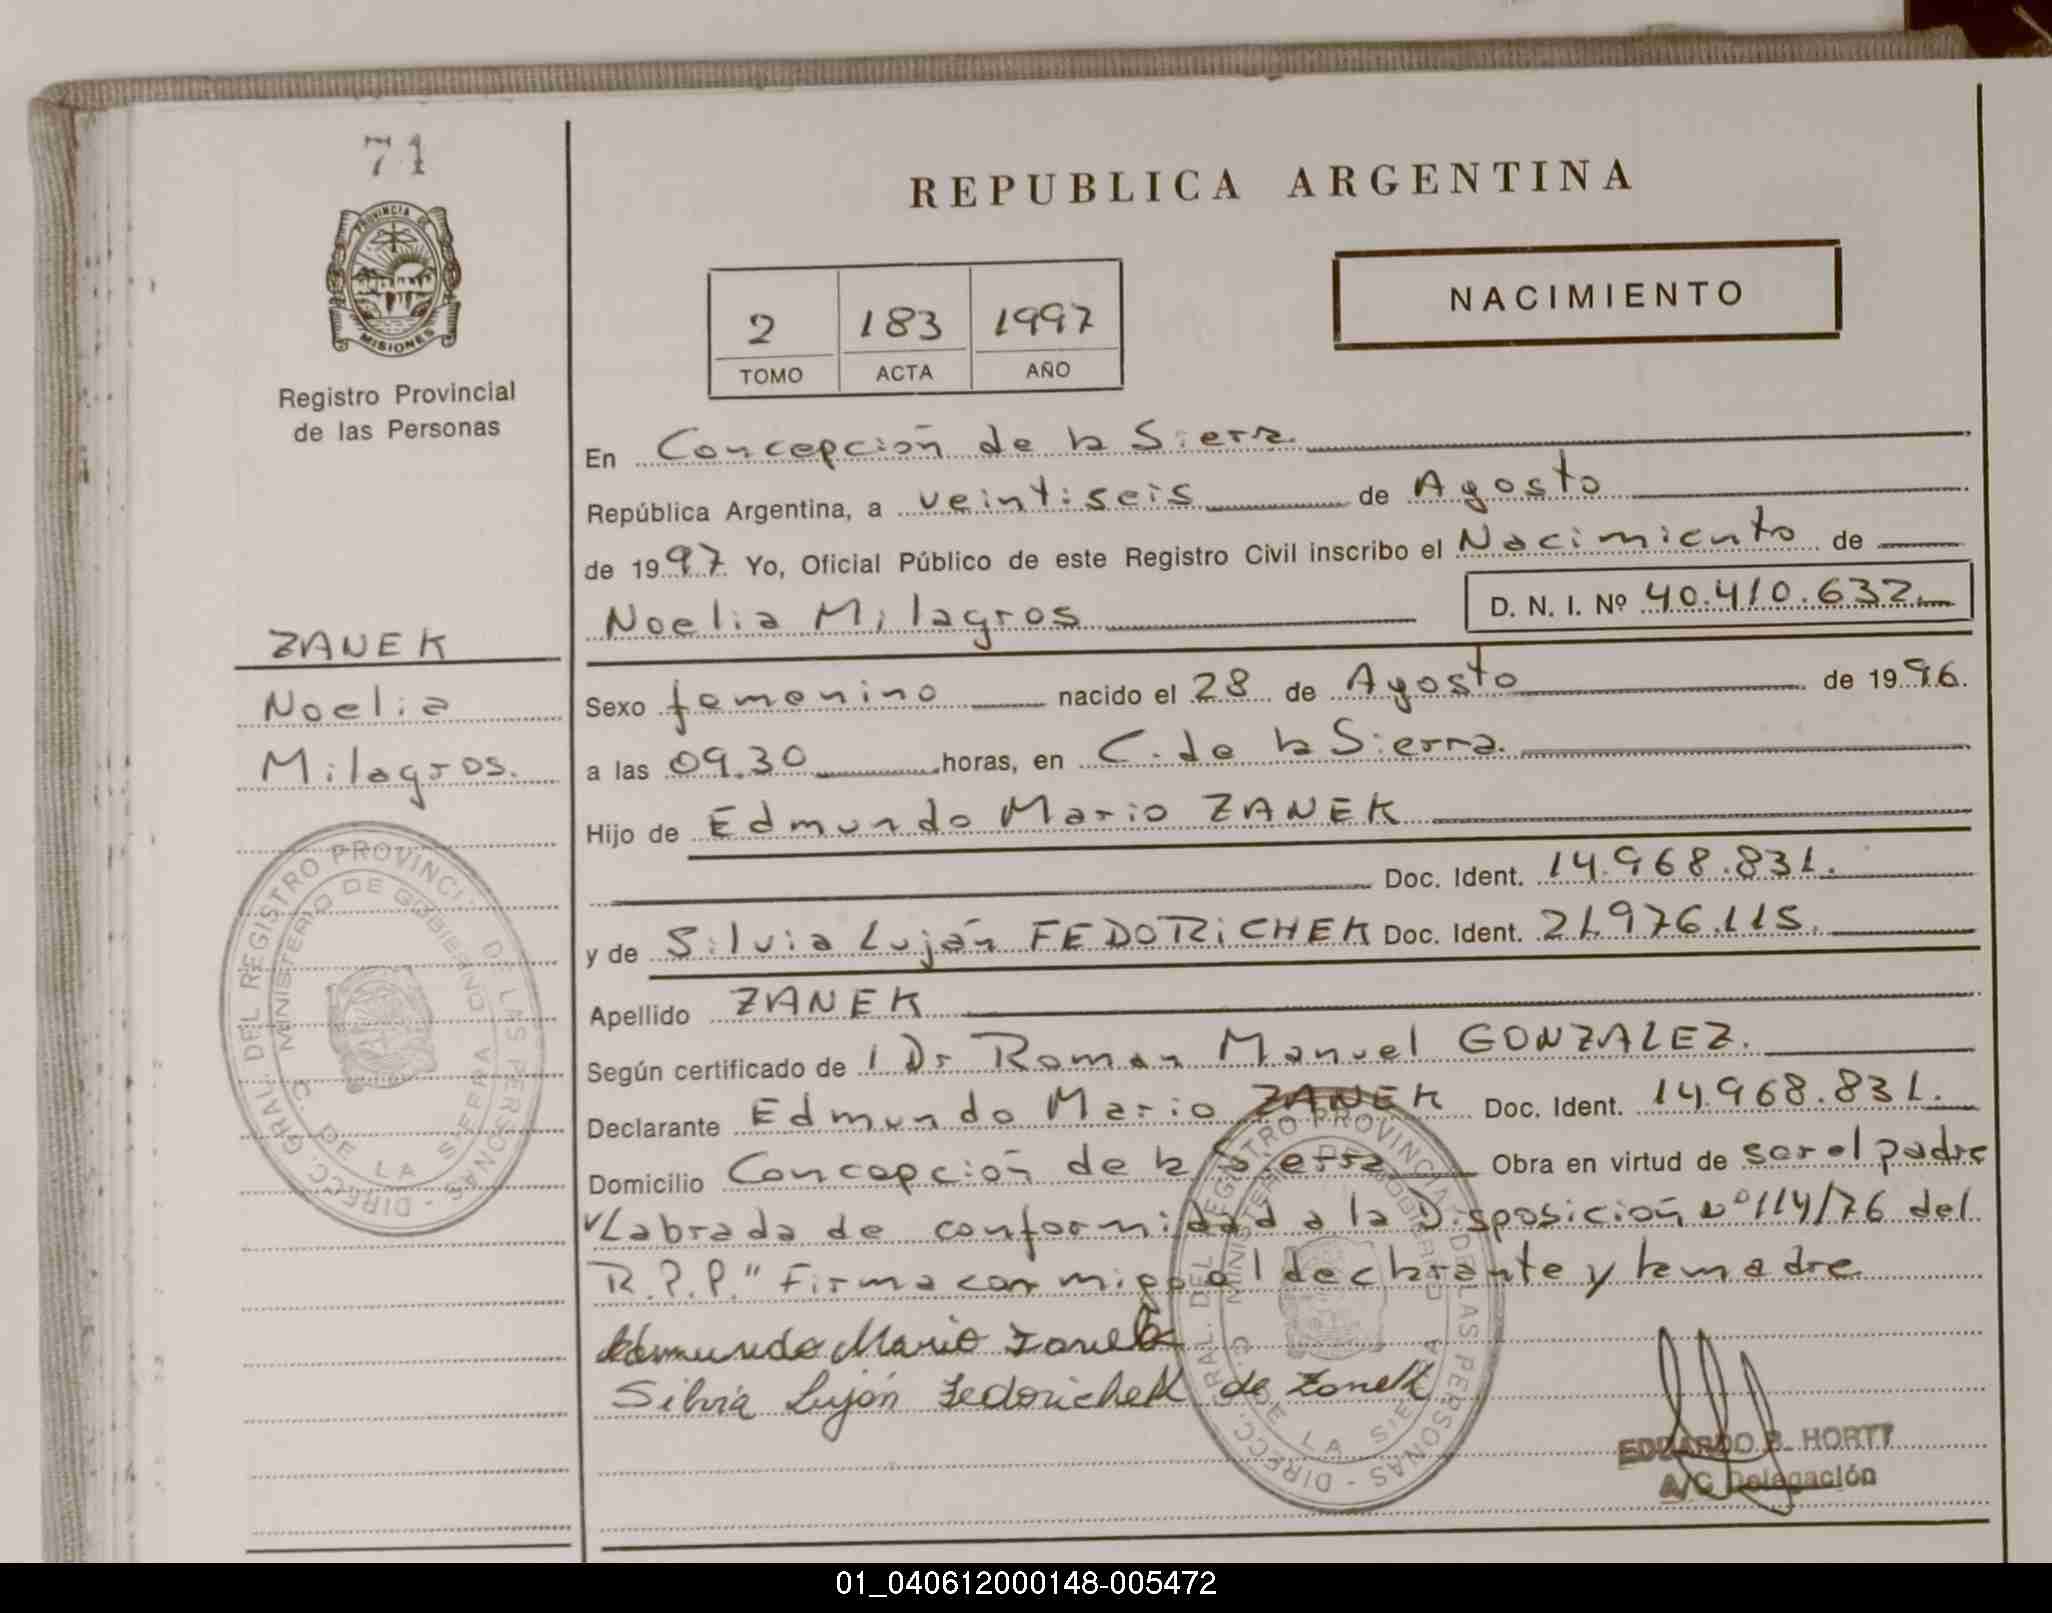 71
PROVINCIA DE
MISIONES
Registro Provincial
de las Personas
ZANEK
Noelia
Milagros.
DIRECC. GRAL. DEL REGISTRO PROVINCIAL DE LAS PERSONAS -
MINISTERIO DE GOBIERNO
C. DE LA SIERRA
REPUBLICA ARGENTINA
2 183 1997
TOMO ACTA AÑO
NACIMIENTO
En Concepción de la Sierra
República Argentina, a veintiseis de Agosto
de 1997 Yo, Oficial Público de este Registro Civil inscribo el Nacimiento de
Noelia Milagros D. N. I. Nº 40.410.632.
Sexo femenino nacido el 28 de Agosto de 1996.
a las 09.30 horas, en C. de la Sierra.
Hijo de Edmundo Mario ZANEK
Doc. Ident. 14.968.831.
y de Silvia Luján FEDORICHEK Doc. Ident. 21.976.115.
Apellido ZANEK
Según certificado de l Dr Roman Manuel GONZALEZ.
Declarante Edmundo Mario ZANEK Doc. Ident. 14.968.831.
Domicilio Concepción de la Sierra Obra en virtud de ser el padre
"Labrada de conformidad a la Disposición Nº 114/76 del
R.P.P." Firma con migo el declarante y la madre
Edmundo Mario Zanek
Silvia Luján Fedorichek de Zanek
DIRECC. GRAL. DEL REGISTRO PROVINCIAL DE LAS PERSONAS -
MINISTERIO DE GOBIERNO
C. DE LA SIERRA
EDUARDO B. HORTT
A/C Delegación
01_040612000148-005472